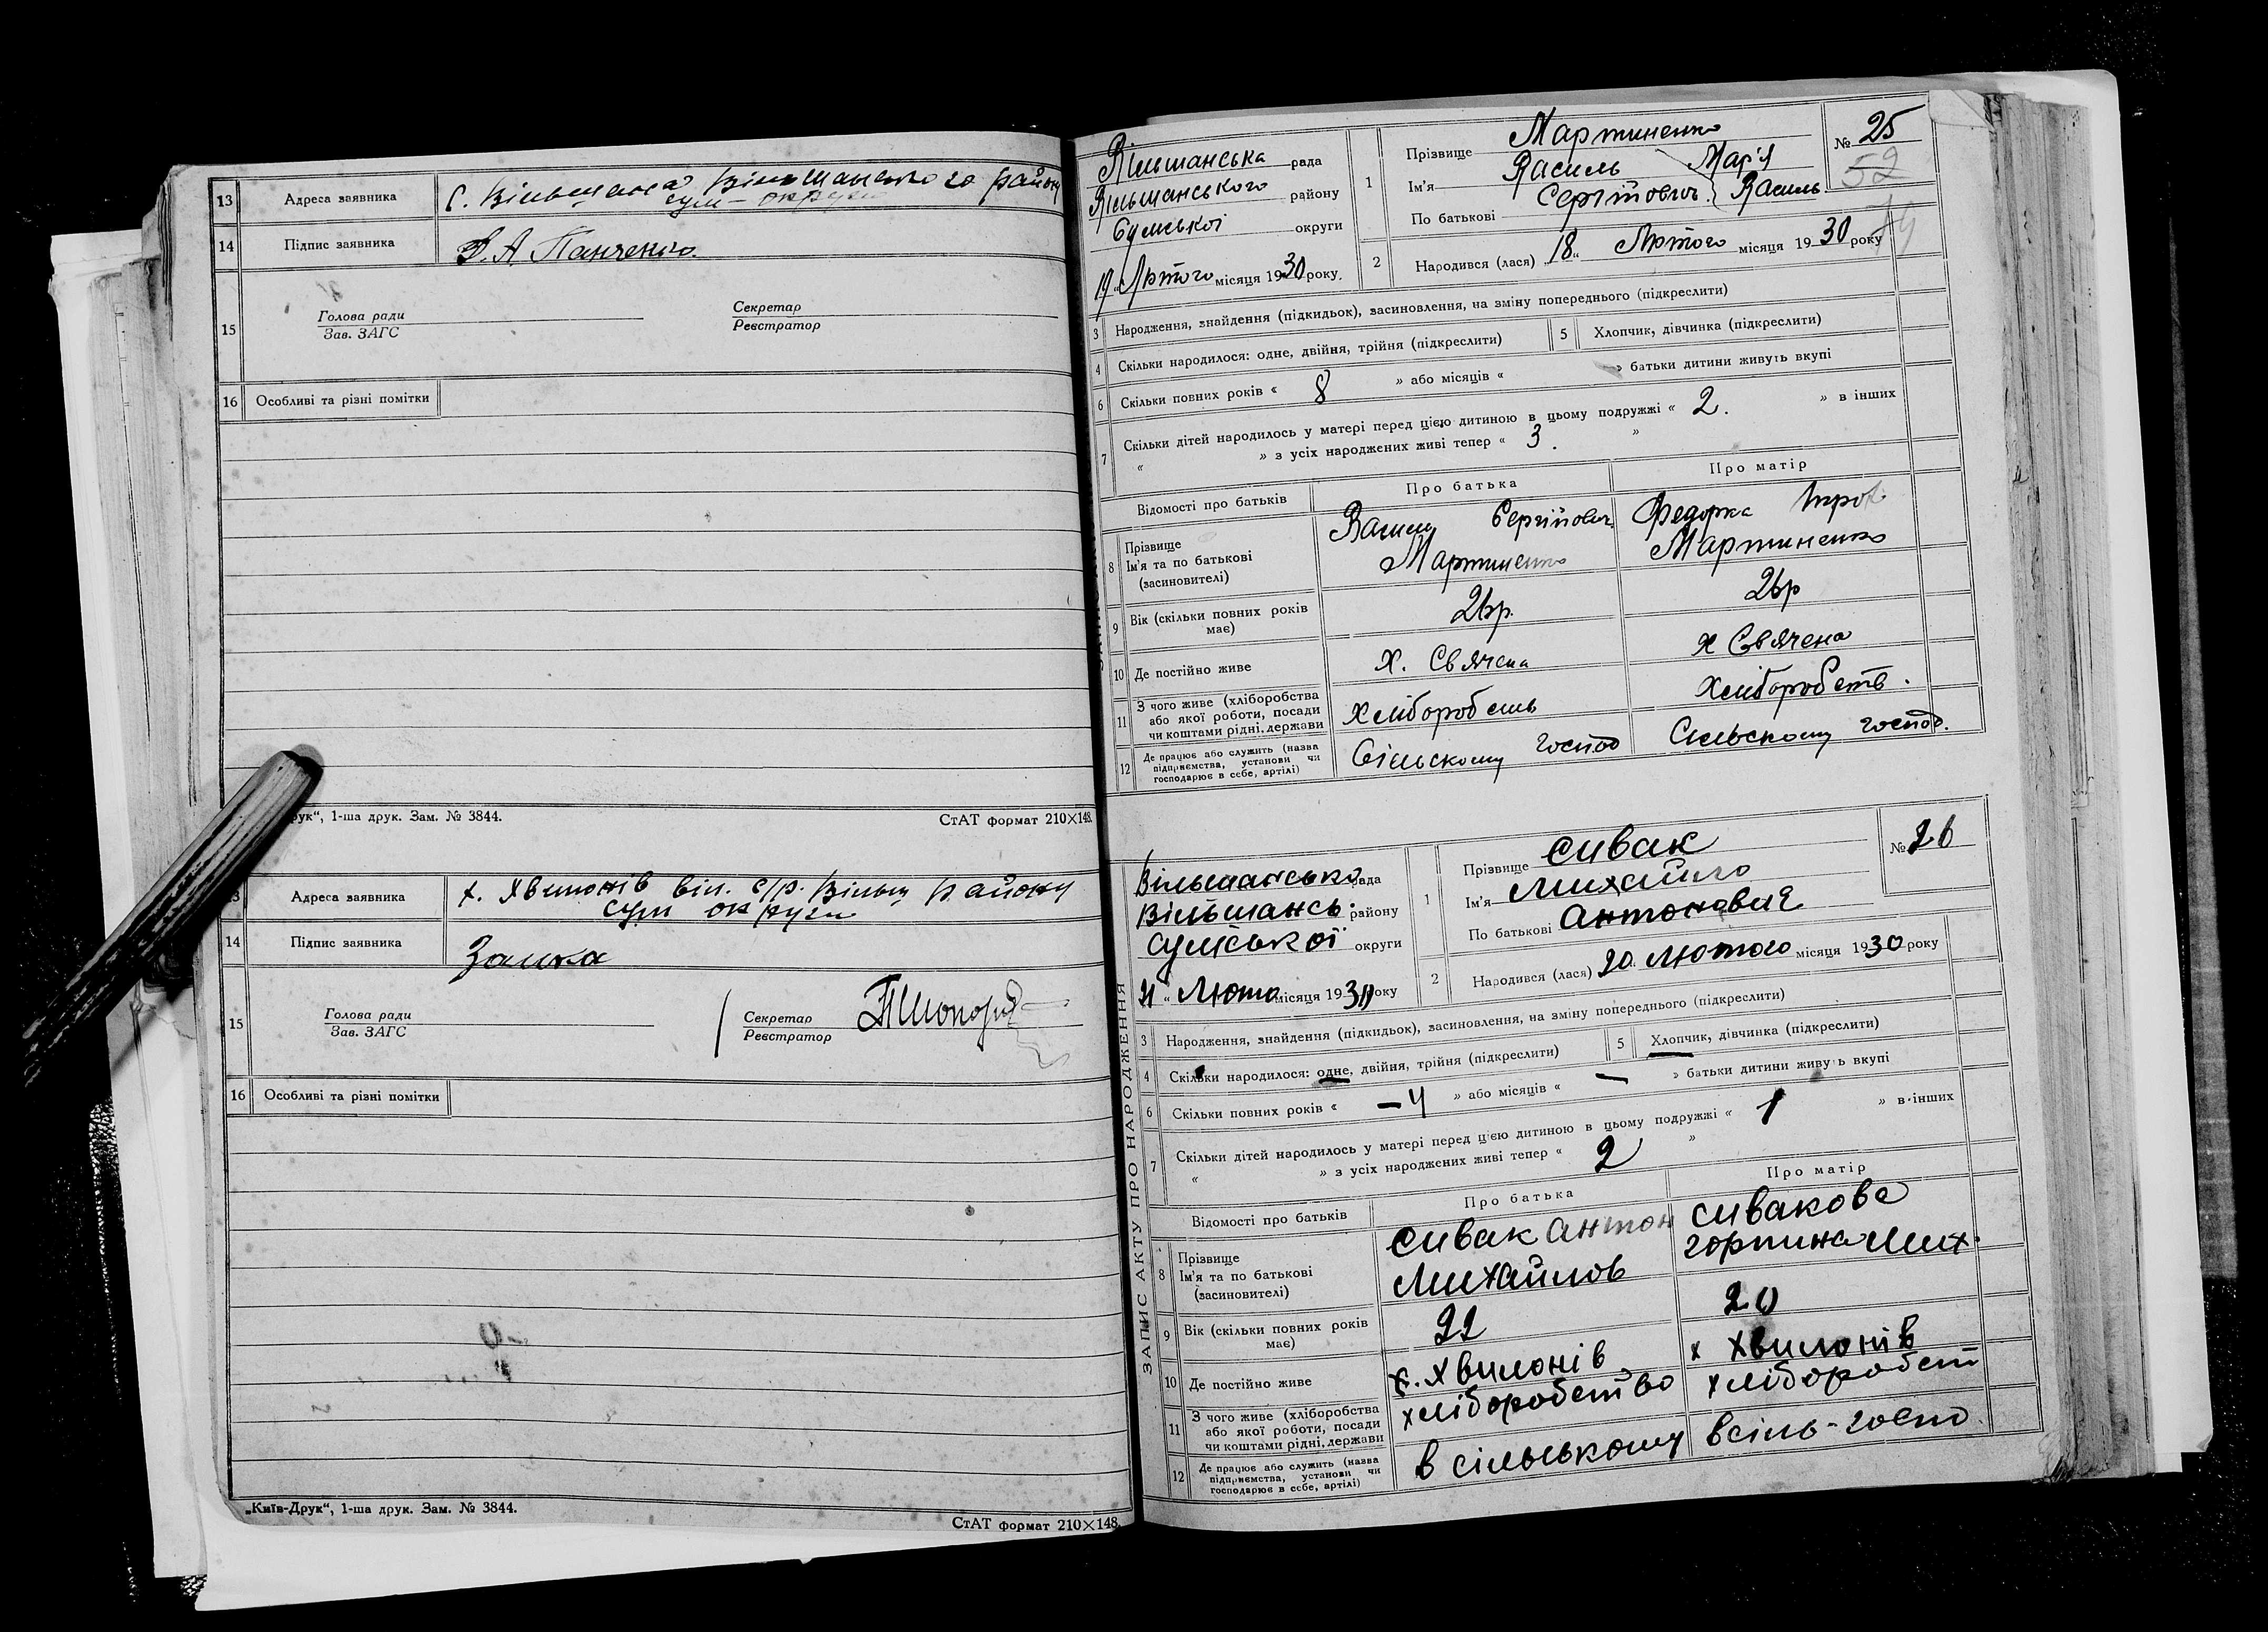 13 Адреса заявника С. Вільшана Вільшанського району
сум- округи
14 Підпис заявника А. Панченко.
15 Голова ради
Зав. ЗАГС
Секретар
Реєстратор
16 Особливі та різні помітки
рук“, 1-ша друк. Зам. № 3844.
СтАТ формат 210×148.
3 Адреса заявника х. Хвилонів віл. с/р. Вільш району
сум округи
14 Підпис заявника Заика
15 Голова ради
Зав. ЗАГС
Секретар
Реєстратор
16 Особливі та різні помітки
„Київ-Друк“, 1-ша друк. Зам. № 3844.
СтАТ формат 210×148.
Вільшанська рада
Вільшанського району
Сумської округи
19 „ Лютого місяця 1930 року.
1 Прізвище Мартиненко
Ім'я Василь Мар'я
По батькові Сергійович Василь
№ 25
52
2 Народився (лася) 18 „ Лютого місяця 1930 року
3 Народження, знайдення (підкидьок), засиновлення, на зміну попереднього (підкреслити)
4 Скільки народилося: одне, двійня, трійня (підкреслити)
5 Хлопчик, дівчинка (підкреслити)
6 Скільки повних років « 8 » або місяців « » батьки дитини живуть вкупі
7 Скільки дітей народилось у матері перед цією дитиною в цьому подружжі « 2. » в інших
« » з усіх народжених живі тепер « 3. »
Відомості про батьків
Про батька
Про матір
8 Прізвище
Ім'я та по батькові
(засиновителі)
Василь Сергійович
Мартиненко
Федорка Троф
Мартиненко
9 Вік (скільки повних років має)
26р.
26р
10 Де постійно живе
Х. Свячена
х Свячена
11 З чого живе (хліборобства
або якої роботи, посади
чи коштами рідні, держави
Хліборобств
Хліборобств.
12 Де працює або служить (назва
підприємства, установи чи
господарює в себе, артілі)
Сільському господ
Сільскому господ.
ЗАПИС АКТУ ПРО НАРОДЖЕННЯ
Вільшансько рада
Вільшансь. району
сумської округи
21 „ Люто місяця 1930 року
1 Прізвище Сивак
Ім'я Михайло
По батькові Антонович
№ 26
2 Народився (лася) 20 лютого місяця 1930 року
3 Народження, знайдення (підкидьок), засиновлення, на зміну попереднього (підкреслити)
4 Скільки народилося: одне, двійня, трійня (підкреслити)
5 Хлопчик, дівчинка (підкреслити)
6 Скільки повних років « – 4 » або місяців « – » батьки дитини живуть вкупі
7 Скільки дітей народилось у матері перед цією дитиною в цьому подружжі « 1 » в інших
« » з усіх народжених живі тепер « 2 »
Відомості про батьків
Про батька
Про матір
8 Прізвище
Ім'я та по батькові
(засиновителі)
Сивак Антон
Михайлов
Сивакова
Горпина Мих.
9 Вік (скільки повних років має)
22
20
10 Де постійно живе
х. Хвилонів
х Хвилонів
11 З чого живе (хліборобства
або якої роботи, посади
чи коштами рідні, держави
хліборобство
хліборобст
12 Де працює або служить (назва
підприємства, установи чи
господарює в себе, артілі)
в сільському
в сіль-госпо